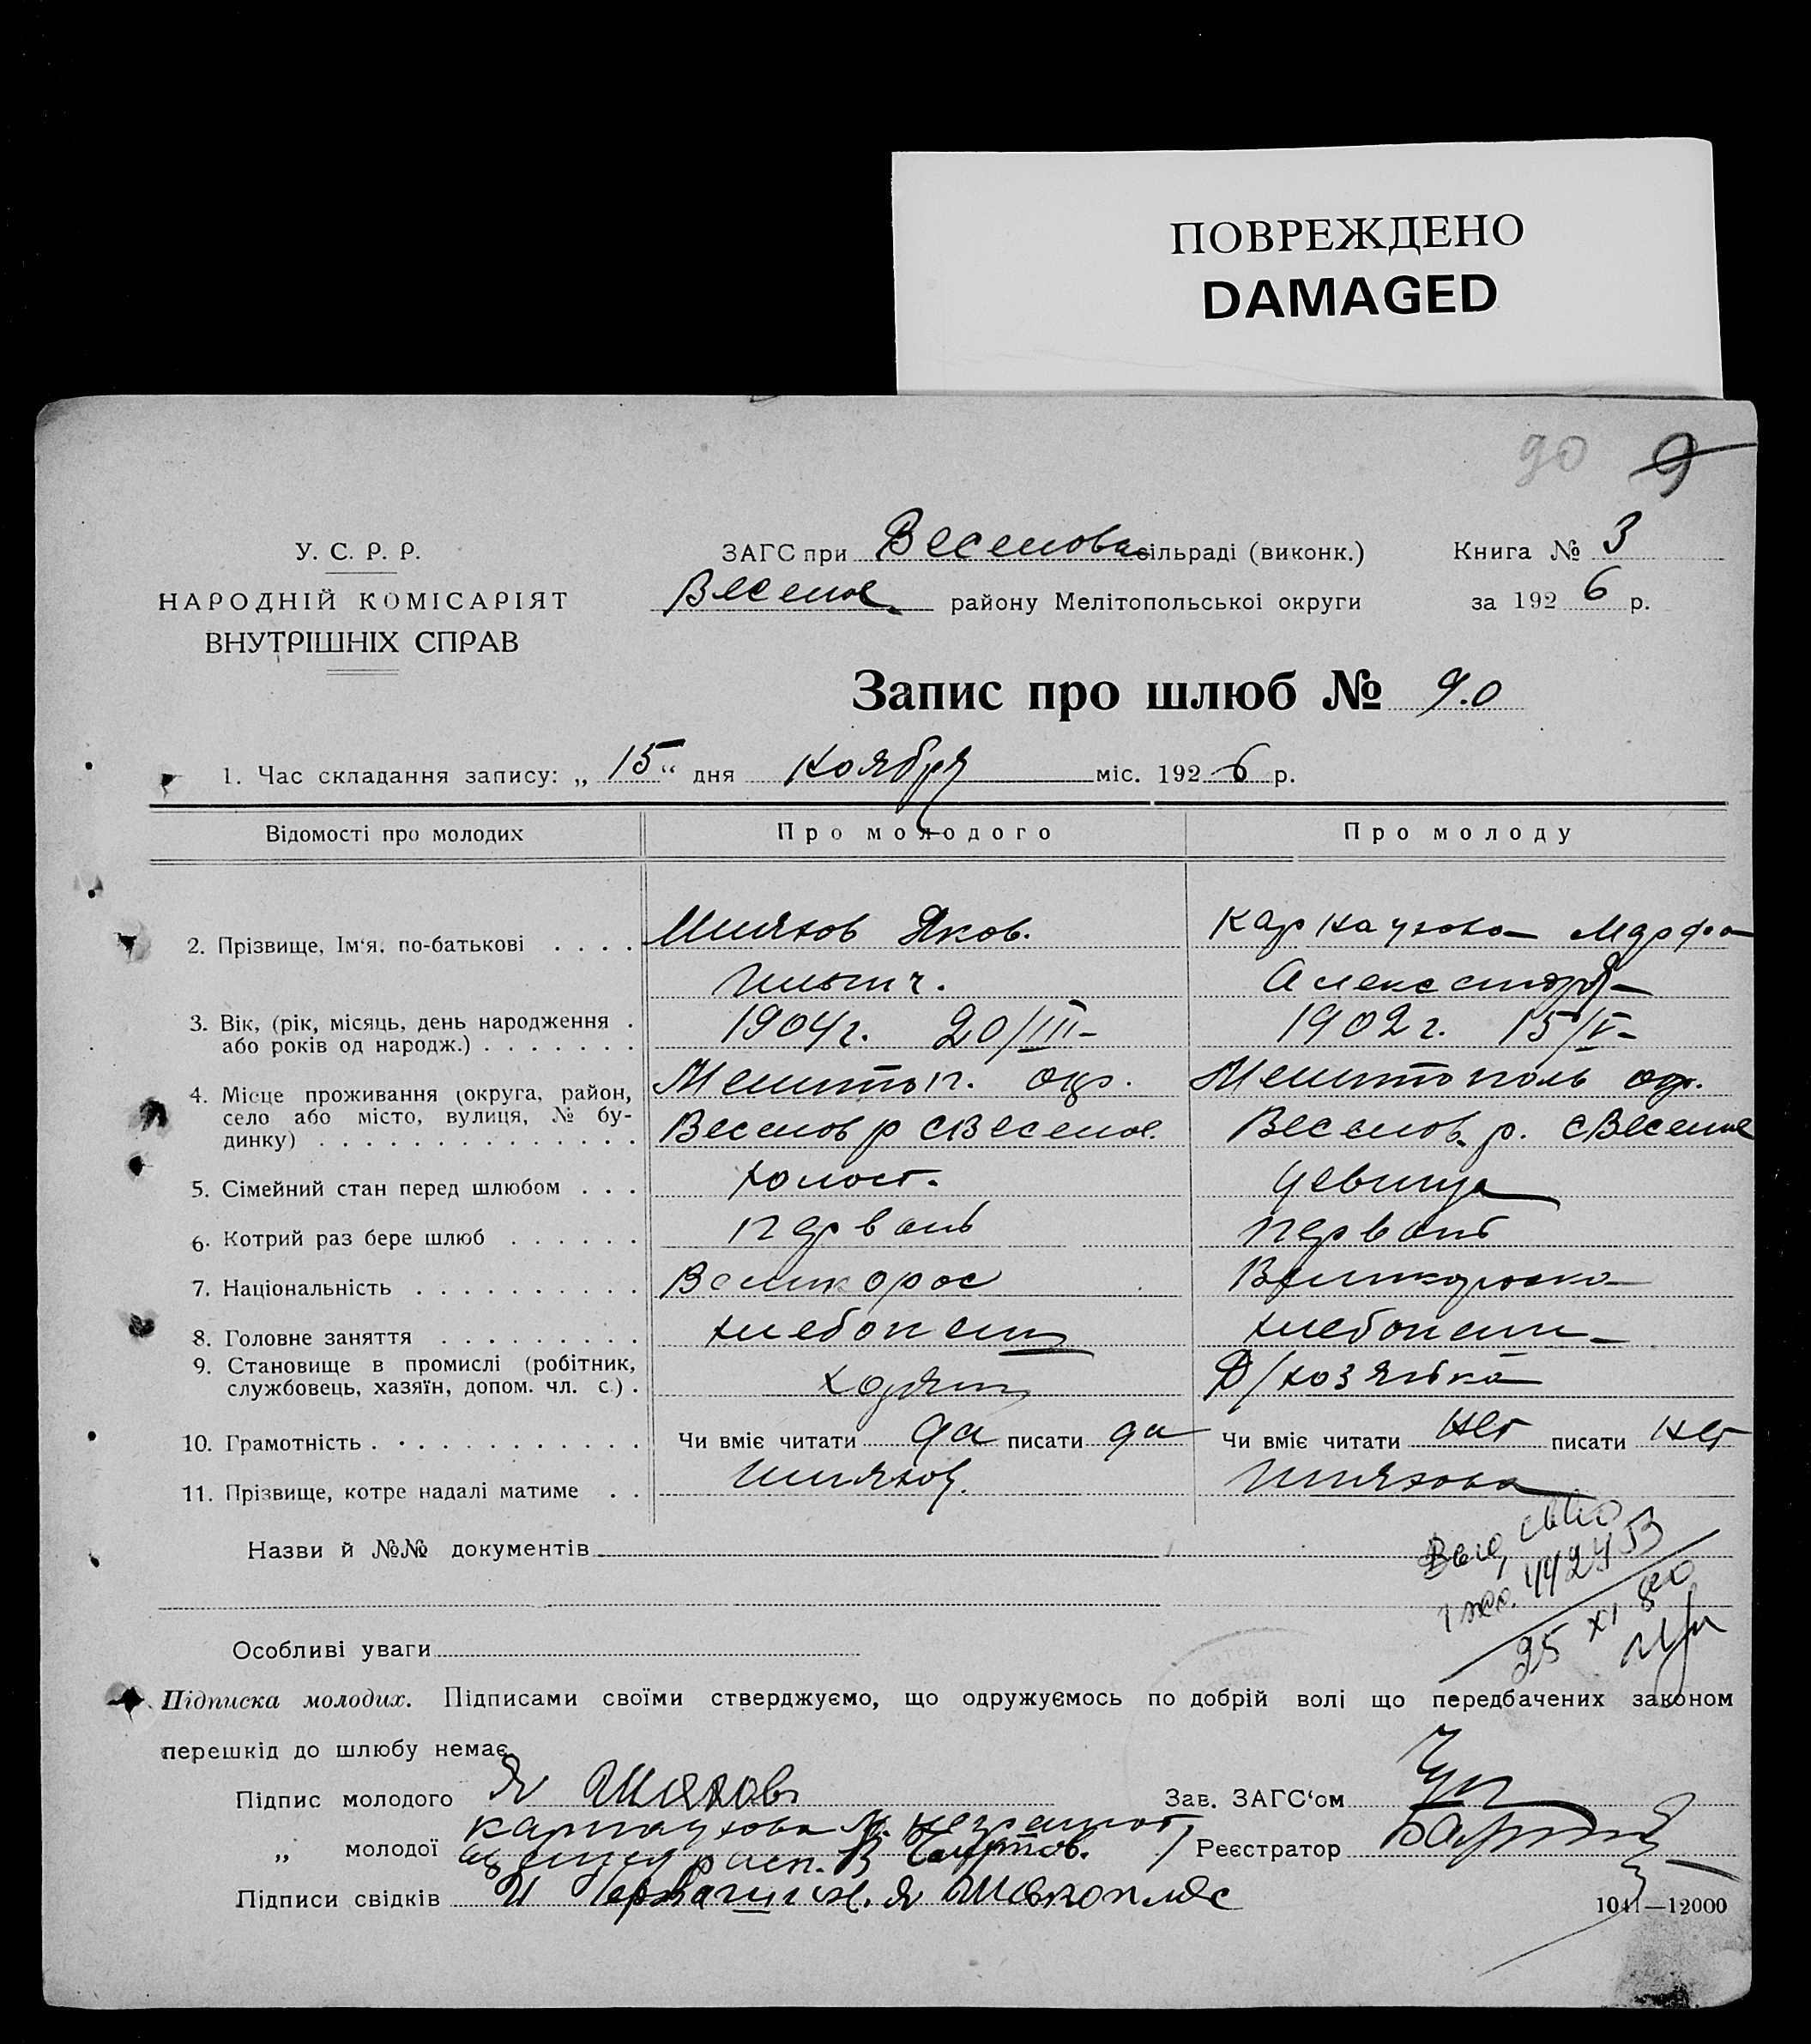 ПОВРЕЖДЕНО
DAMAGED
90 9
У. С. Р. Р.
НАРОДНІЙ КОМІСАРІЯТ
ВНУТРІШНІХ СПРАВ
ЗАГС при Веселовс сільраді (виконк.) Книга № 3
Веселов. району Мелітопольськоі округи за 1926 р.
Запис про шлюб № 90
1. Час складання запису: „ 15 “ дня ноября міс. 1926 р.
Відомості про молодих Про молодого Про молоду
2. Прізвище, Ім‘я, по-батькові . . . . Шляхов Яков. Марфа
Ильич. Александр
3. Вік, (рік, місяць, день народження . 1904 г. 20/III- 1902 г. 15/V-
або років од народж.) . . . . . . .
4. Місце проживання (округа, район, Мелитоп. окр. Мелитополь окр.
село або місто, вулиця, № бу- Веселов р с Веселое. Веселов. р. с Веселое
динку) . . . . . . . . . . . . . .
5. Сімейний стан перед шлюбом . . . холост. девица
6. Котрий раз бере шлюб . . . . . . первый первый
7. Національність . . . . . . . . . . Великорос Великороска
8. Головне заняття . . . . . . . . . хлебопаш хлебопаш
9. Становище в промислі (робітник, хозяин Д/хозяйка
службовець, хазяїн, допом. чл. с.) .
10. Грамотність . . . . . . . . . . . . Чи вміє читати да писати да Чи вміє читати нет писати нет
11. Прізвище, котре надалі матиме . . Шляхов. Шляхова
Назви й №№ документів
Выд. св-во
442453
25 XI 80
Особливі уваги
Підписка молодих. Підписами своїми стверджуємо, що одружуємось по добрій волі що передбачених законом
перешкід до шлюбу немає.
Підпис молодого Я Шляхов Зав. ЗАГС‘ом
„ молодої неграмот. Реєстратор
расп. В
Підписи свідків И Я 1041—12000